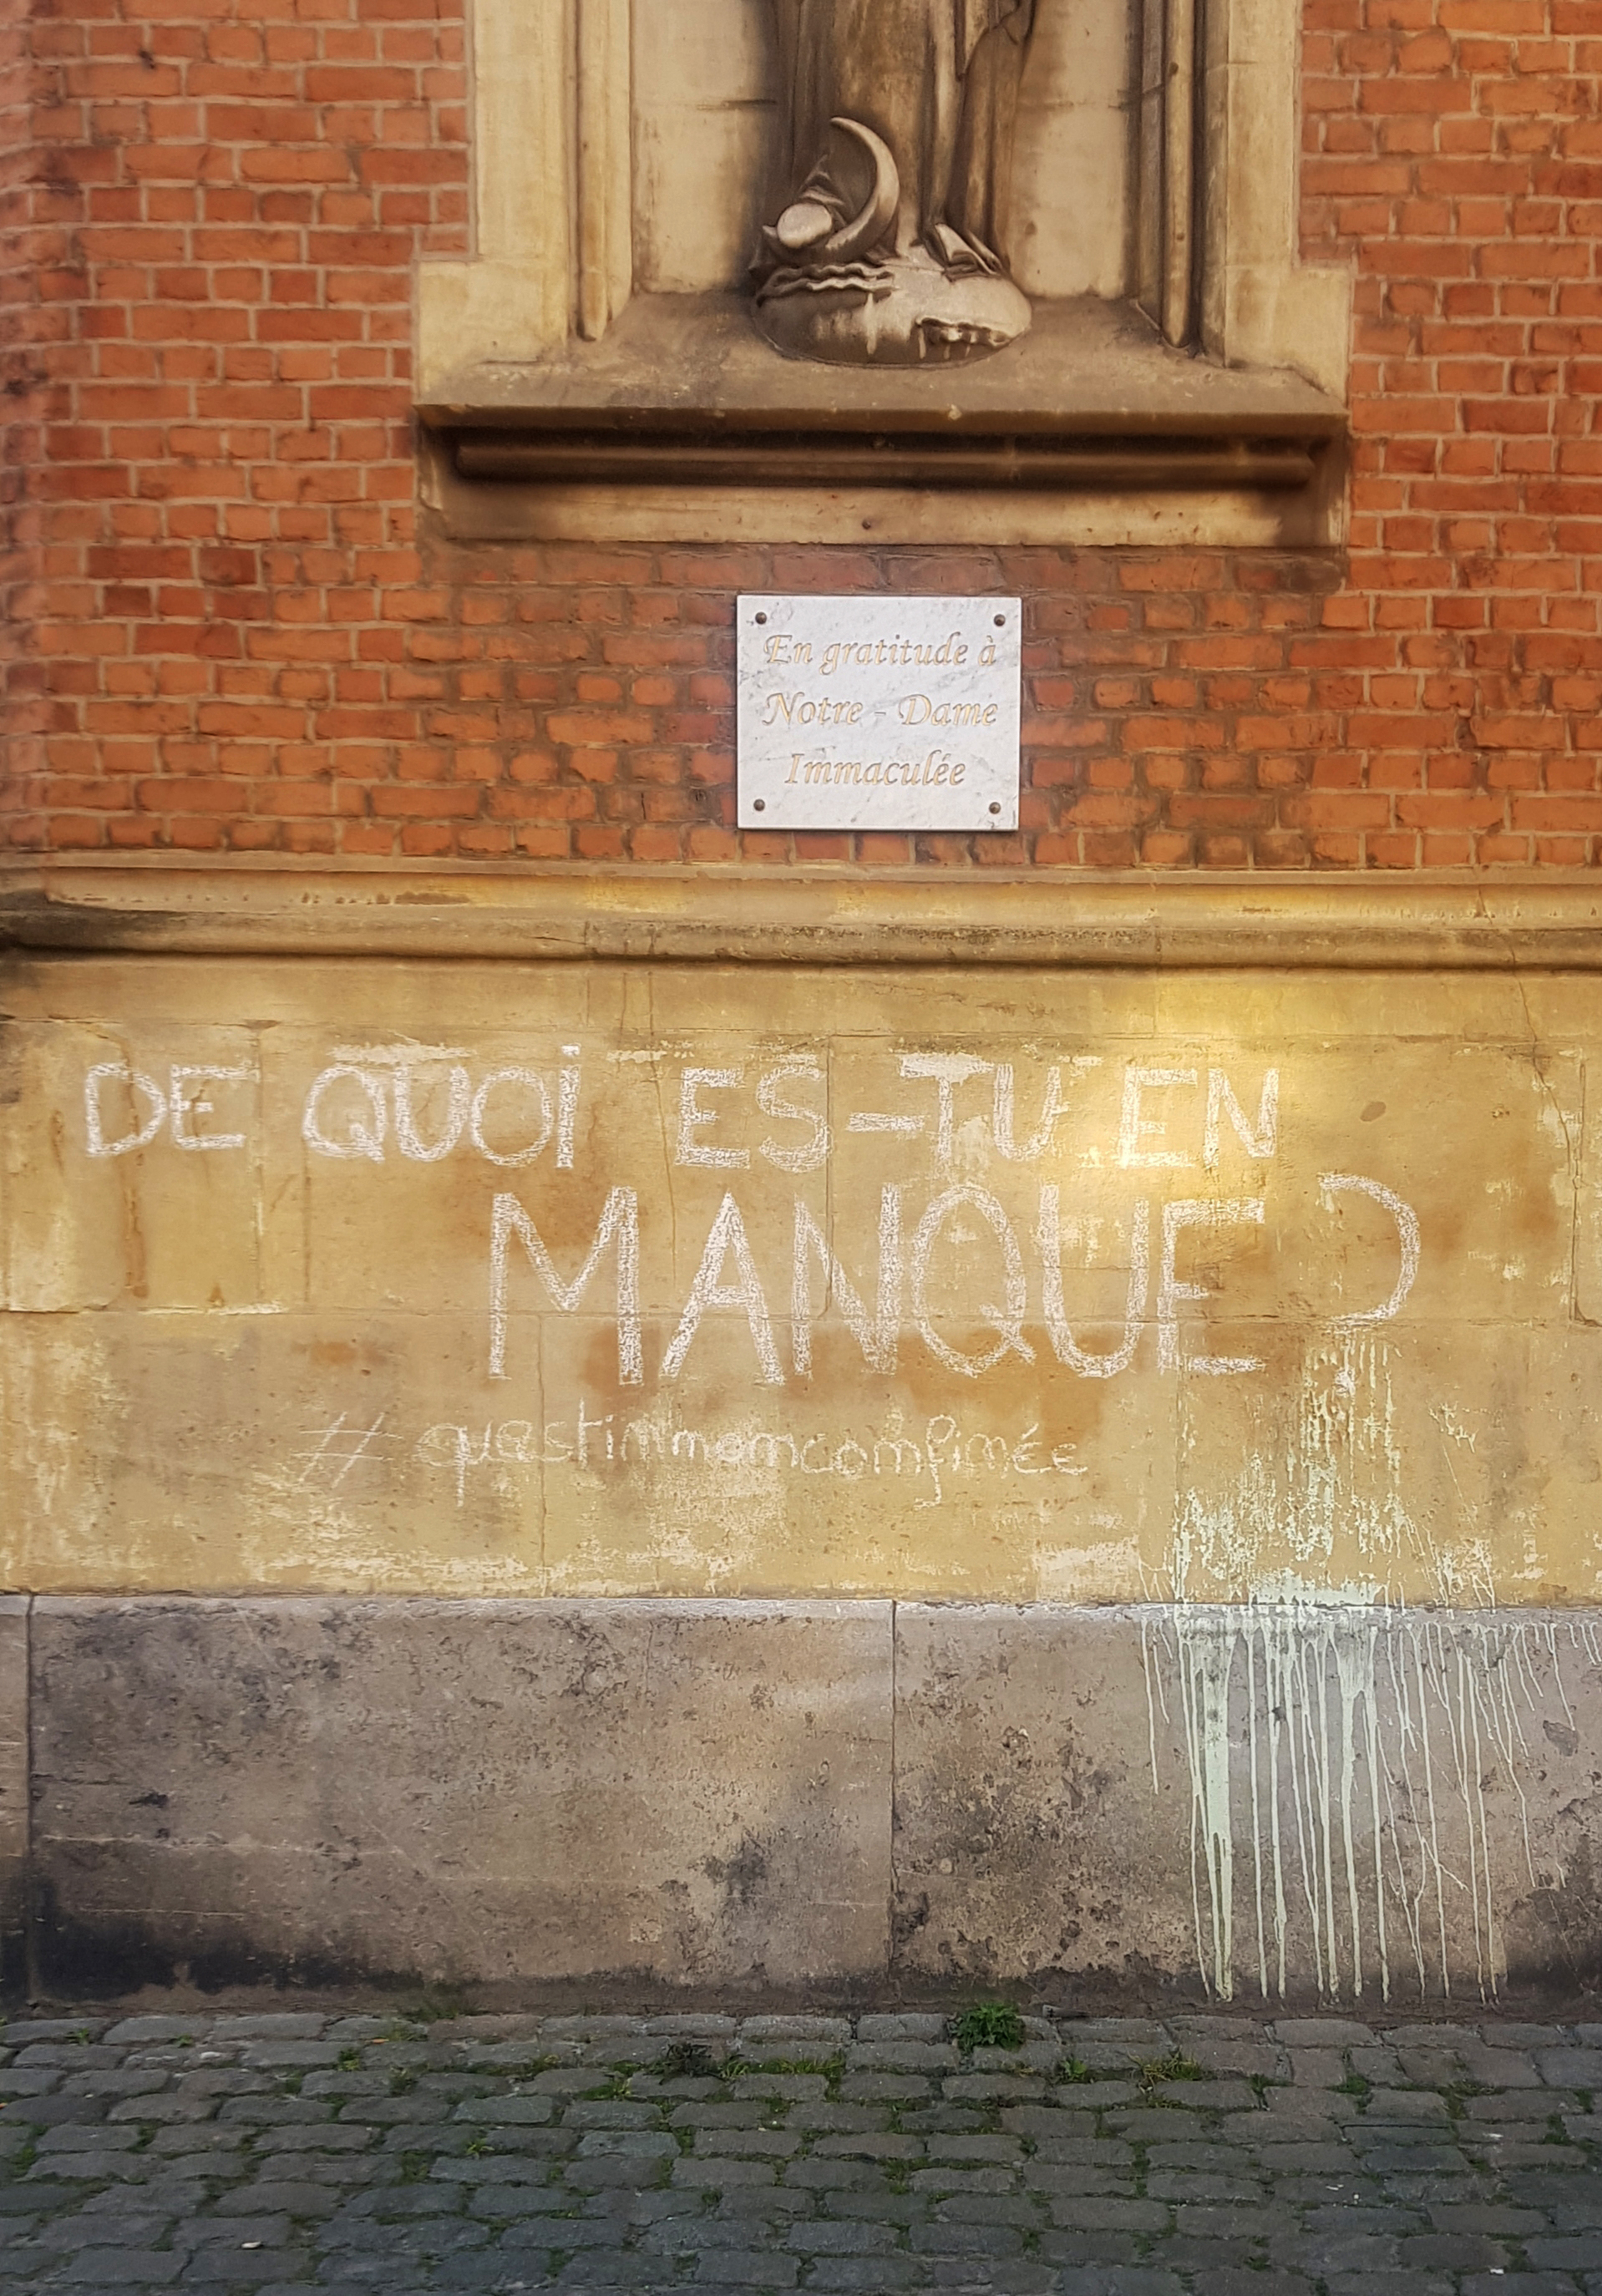 En gratitude à
Notre - Dame
Immaculée
DE QUOi ES-TU EN
MANQUE ?
# questinmomcomfimée